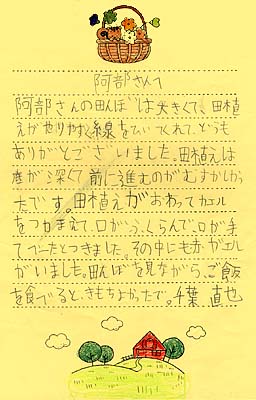 阿部さんへ
阿部さんの田んぼは大きくて、田植
えがやりやすく線をひいてくれて、どうも
ありがとうございました。田植えは
底が深くて前に進むのがむずかしかっ
たです。田植えがおわってカエル
をつかまえて、口がふくらんで、口が手
にべったとつきました。その中にも赤ガエル
がいました。田んぼを見ながら、ご飯
を食べてると、きもちよかったで。千葉 直也